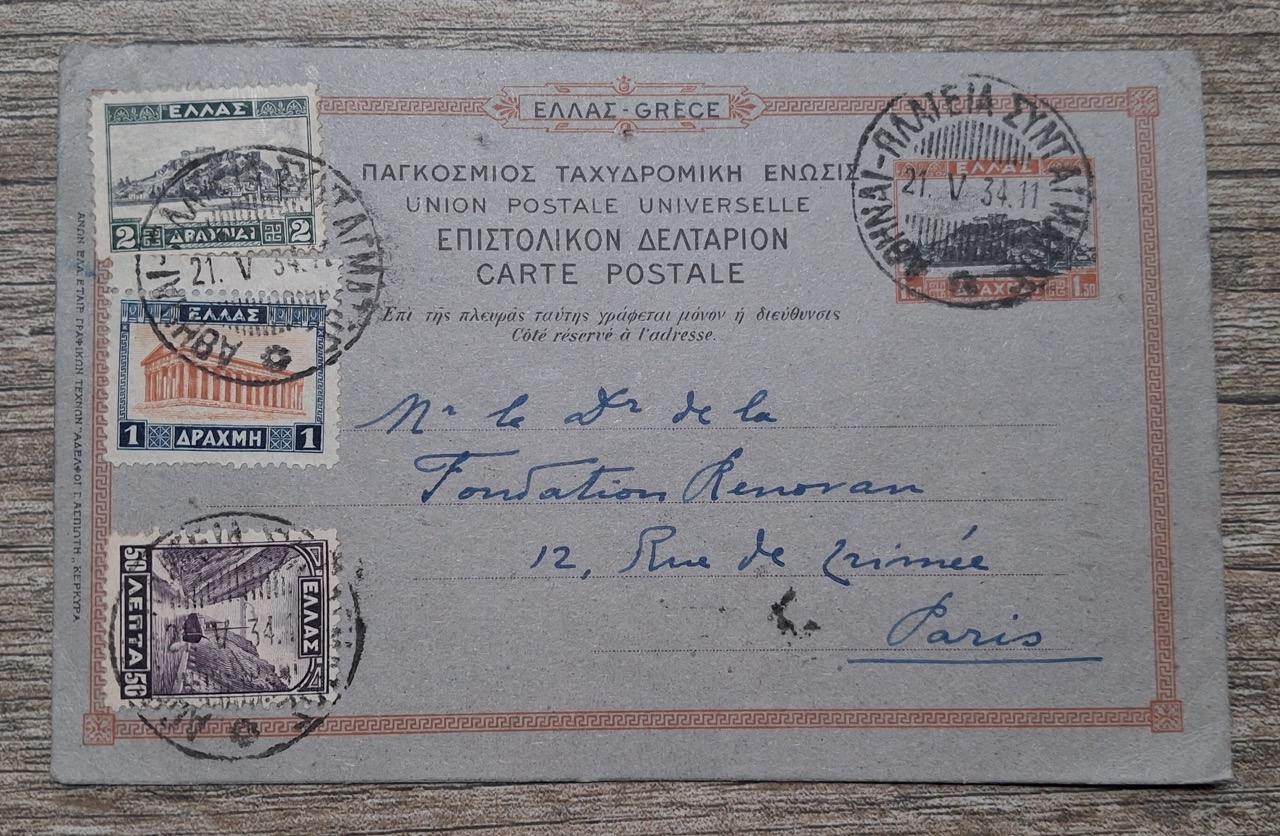 ΕΛΛΑΣ-GRÈCE
ΠΑΓΚΟΣΜΙΟΣ ΤΑΧΥΔΡΟΜΙΚΗ ΕΝΩΣΙΣ
UNION POSTALE UNIVERSELLE
ΕΠΙΣΤΟΛΙΚΟΝ ΔΕΛΤΑΡΙΟΝ
CARTE POSTALE
Ἐπὶ τῆς πλευρᾶς ταύτης γράφεται μόνον ἡ διεύθυνσις
Côté réservé à l'adresse.
ΕΛΛΑΣ
2 ΔΡΑΧΜΑΙ 2
21. V 34.11
ΕΛΛΑΣ
1 ΔΡΑΧΜΗ 1
ΕΛΛΑΣ
50 ΛΕΠΤΑ 50
V 34.
ΑΘΗΝΑΙ-ΠΛΑΤΕΙΑ ΣΥΝΤΑΓΜΑΤΟΣ
21. V 34.11
ΕΛΛΑΣ
1.50 ΔΡΑΧΜΑΙ 1.50
Mr le Dr de la
Fondation Renovan
12, Rue de Crimée
Paris
ΑΝΩΝ. ΕΛΛ. ΕΤΑΙΡ. ΓΡΑΦΙΚΩΝ ΤΕΧΝΩΝ "ΑΔΕΛΦΟΙ Γ. ΑΣΠΙΩΤΗ„ ΚΕΡΚΥΡΑ